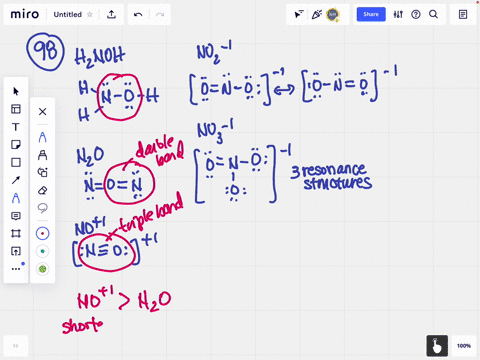 miro
Untitled
Share
98
H₂NOH
H
N-O-H
H
NO₂⁻¹
[:Ö=N̈-Ö:]⁻¹ ↔ [:Ö-N̈=Ö]⁻¹
N₂O
double bond
N̈=O=N̈
NO₃⁻¹
[Ö=N-Ö:]⁻¹
:Ö:
3 resonance
structures
NO⁺¹
triple bond
[:N≡O:]⁺¹
NO⁺¹ > H₂O
shorte
100%